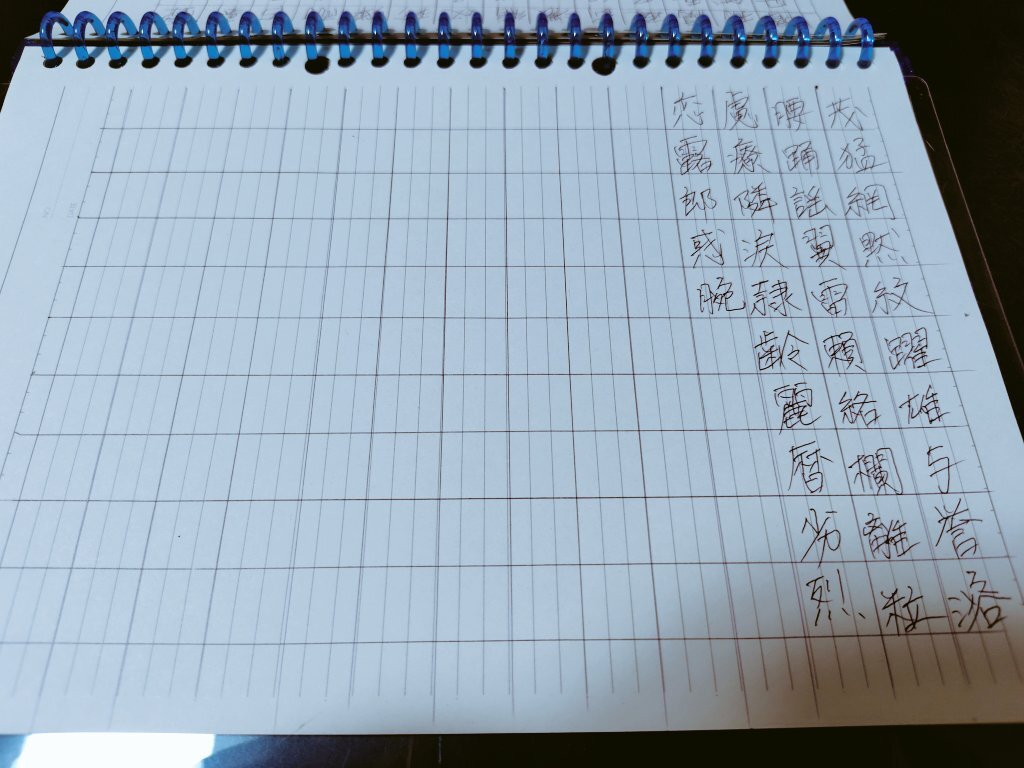 茂猛網黙紋躍雄与誉溶
腰踊謡翼雷頼絡欄離粒
慮療隣涙隷齢麗暦劣烈
恋露郎惑腕